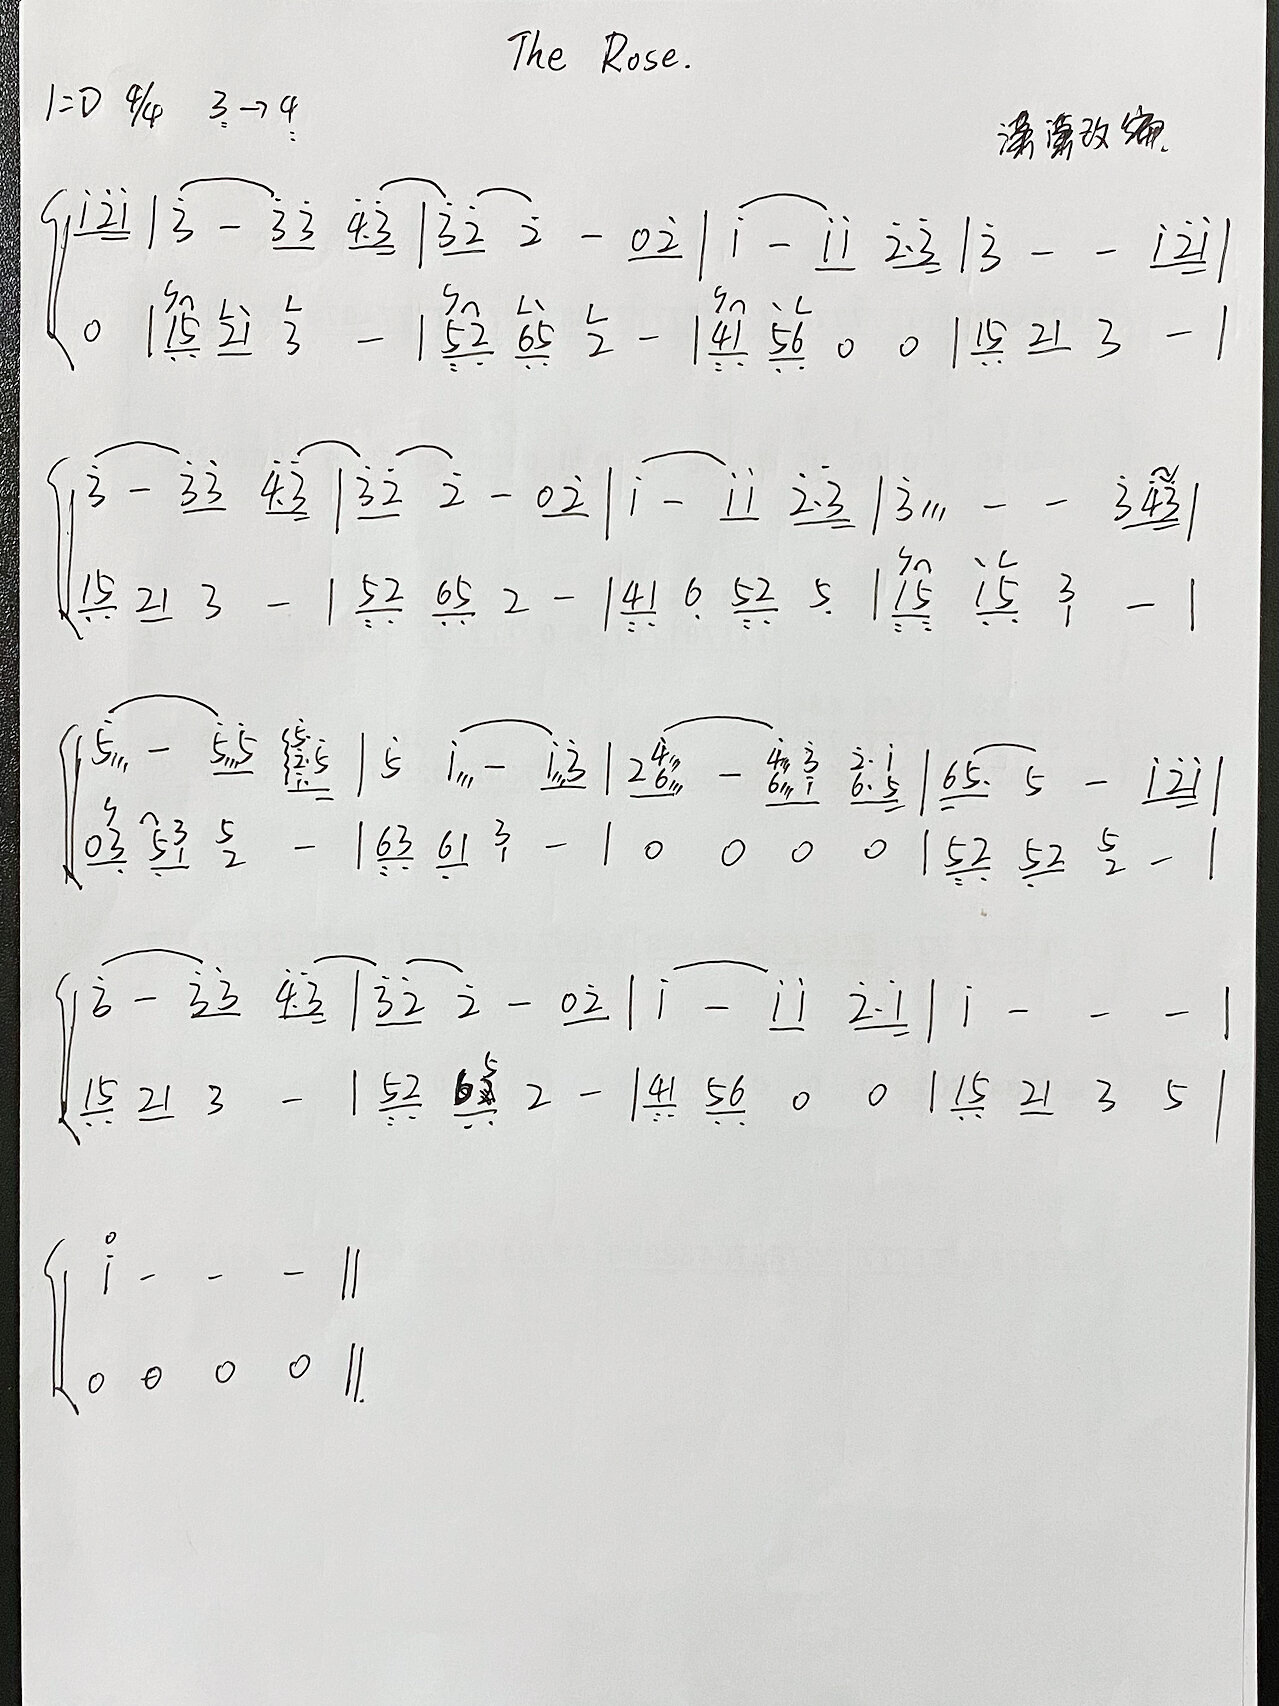 The Rose.
1=D 4/4 3→4
潇潇改编.
i̇2̇i̇ | 3̇ - 3̇3̇ 4̇.3̇ | 3̇2̇ 2̇ - 02̇ | i̇ - i̇i̇ 2̇.3̇ | 3̇ - - i̇2̇i̇ |
0 | 15 21 3 - | 52 65 2 - | 41 56 0 0 | 15 21 3 - |
3̇ - 3̇3̇ 4̇.3̇ | 3̇2̇ 2̇ - 02̇ | i̇ - i̇i̇ 2̇.3̇ | 3̇/// - - 3̇4̇3̇ |
15 21 3 - | 52 65 2 - | 41 6 52 5 | 15 15 3/1 - |
5̇/// - 5̇///5̇ 5̇.2̇.i̇.5̇ | 5̇ i̇/// - i̇///3̇ | 2 4̇///6/// - 4̇///6/// 3̇i̇ 2̇.i̇ 6.5 | 65. 5 - i̇2̇i̇ |
03 5 3/1 5/2 - | 63 61 3/1 - | 0 0 0 0 | 52 52 5/2 - |
3̇ - 3̇3̇ 4̇.3̇ | 3̇2̇ 2̇ - 02̇ | i̇ - i̇i̇ 2̇.i̇ | i̇ - - - |
15 21 3 - | 52 65 2 - | 41 56 0 0 | 15 21 3 5 |
i̇ - - - ||
0 0 0 0 ||